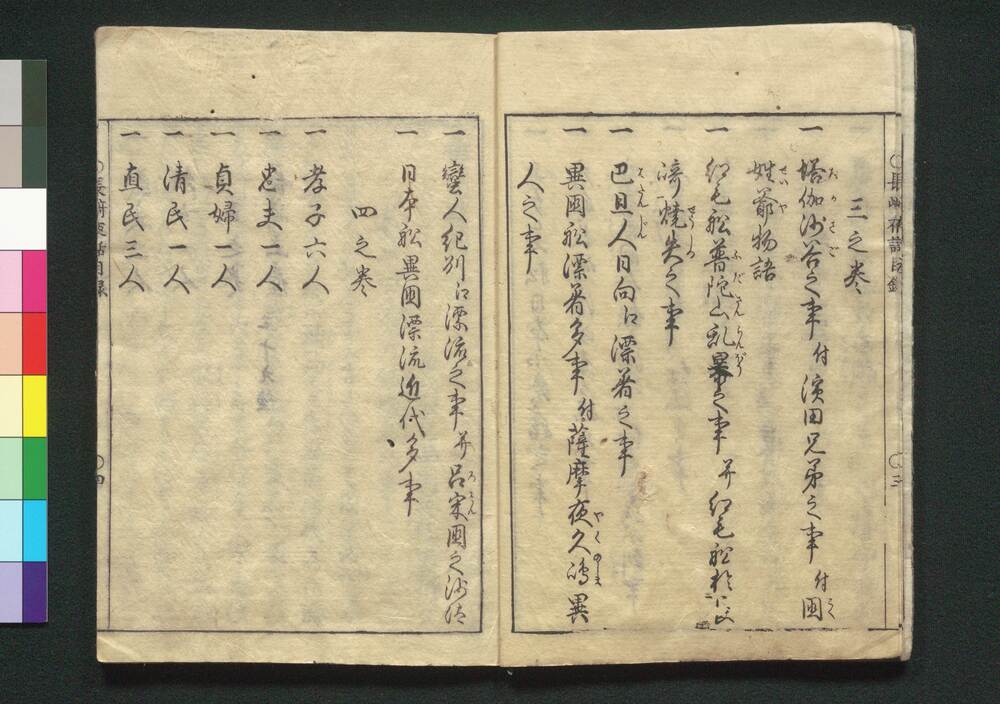 三之巻
一 塔伽沙谷之事 付 濱田兄弟之事 付 國
姓爺物語
一 紅毛舩普陀山乱暴之事 并 紅毛舩於
焼失之事
一 巴旦人日向江漂着之事
一 異国舩漂着多事 付 薩摩夜久嶋異
人之事
一 蠻人紀列江漂流之事 并 呂宋國之沙汰
一 日本舩異國漂流近代多事
四之巻
一 孝子六人
一 忠夫一人
一 貞婦一人
一 清民一人
一 直民三人